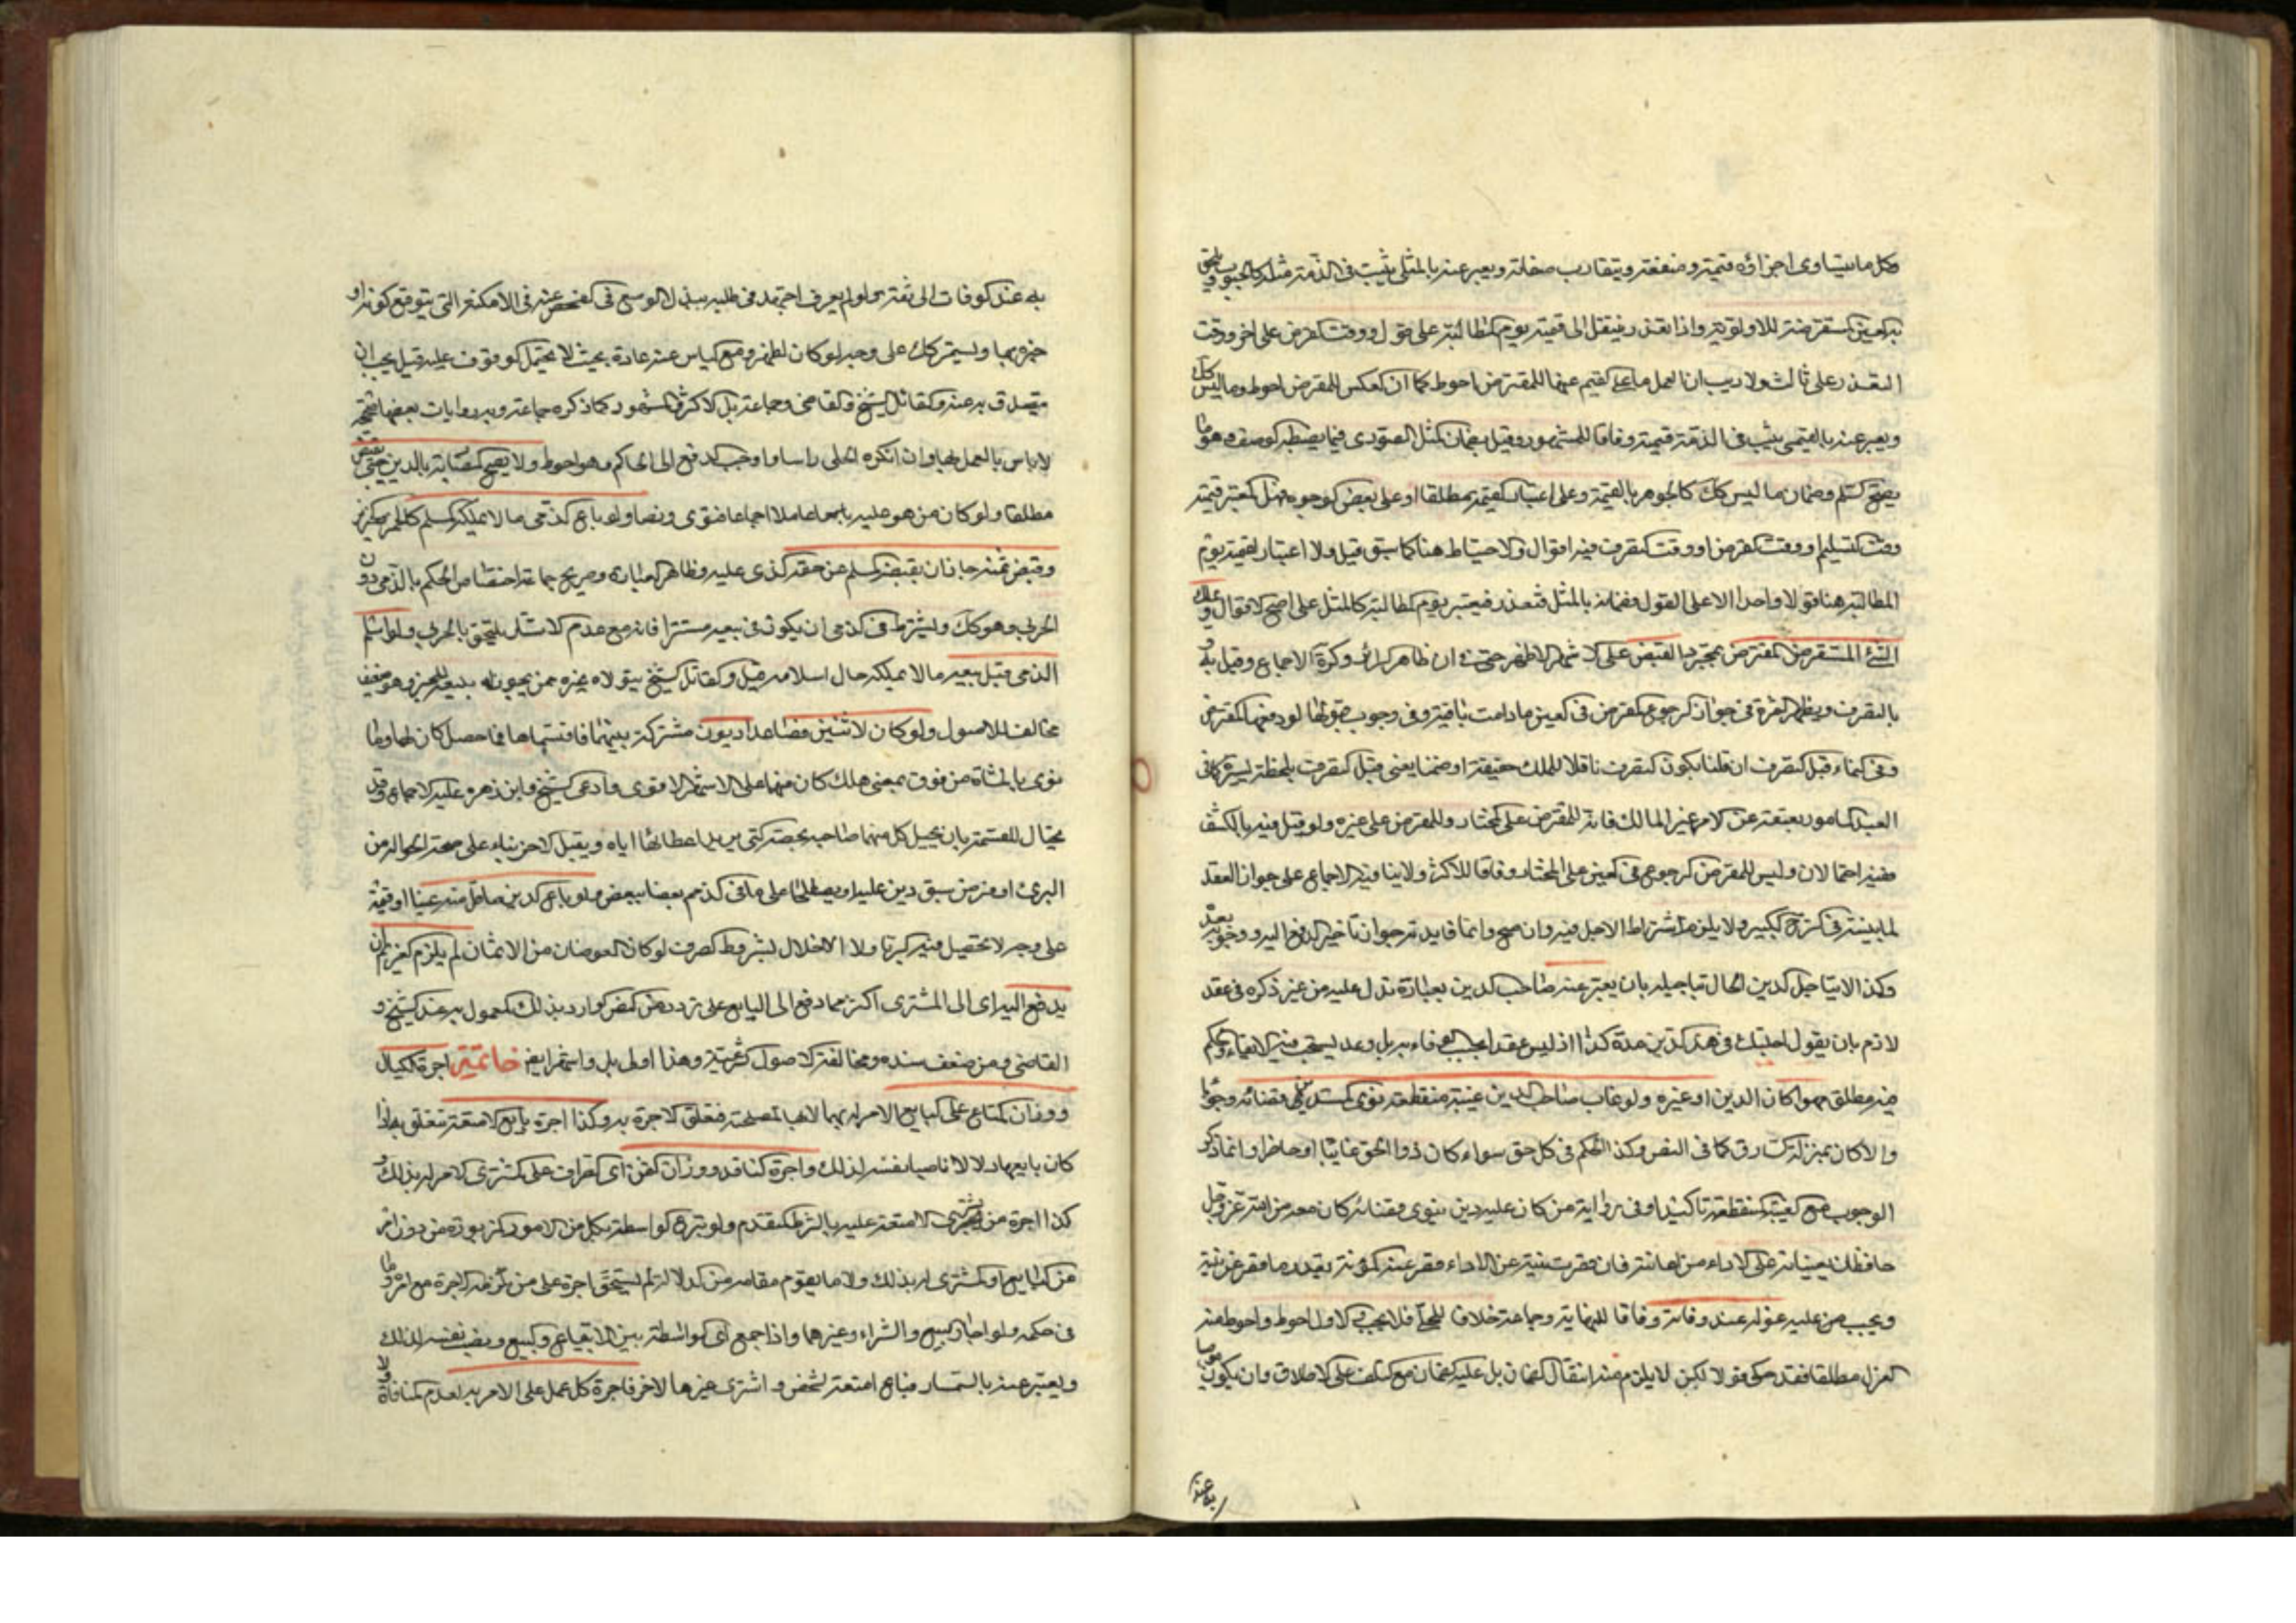 وكل ما يتساوى اجزاؤه قيمة ومنفعة ويتقارب صفاته ويعبر عنه بالمثلي يثبت في الذمة مثله كالحبوب
واذا تعذر فينتقل الى قيمته يوم المطالبة على قول ووقت القرض على اخر ووقت
التعذر على ثالث ولا ريب ان العمل باعلى القيم للمقترض احوط كما ان العكس للمقرض احوط وما ليس كك
ويعبر عنه بالقيمي يثبت في الذمة قيمته وفاقا للمشهور وقيل بضمان المثل الصوري فيما يضبطه الوصف وهو ما
يصح السلم وضمان ما ليس كك كالجوهر بالقيمة وعلى اعتبار القيمة مطلقا او على بعض الوجوه هل المعتبر قيمته
وقت التسليم او وقت القرض او وقت التصرف فيه اقوال والاحتياط هنا كما سبق قيل ولا اعتبار لقيمته يوم
المطالبة هنا قولا واحدا الا على القول بضمانه بالمثل فتعذر فيعتبر يوم المطالبة كالمثل على اصح الاقوال ويملك
الشئ المستقرض المقترض بمجرد القبض على الاشهر الاظهر حتى ان ظاهر السرائر وكرة الاجماع وقيل بل
بالتصرف ويظهر الثمرة في جواز الرجوع المقرض في العين ما دامت باقية وفي وجوب قبولها لو دفعها المقترض
وفي النماء قبل التصرف ان قلنا بكون التصرف ناقلا للملك حقيقة او ضمنا يعني قبل التصرف بلحظة يسيرة كما في
العبد المامور بعتقه عن الامر غير المالك فانه للمقترض على المختار وللمقرض على غيره ولو قيل فيه بالكشف
ففيه احتمالان وليس للمقرض الرجوع في العين على المختار وفاقا للاكثر ولا ينافيه الاجماع على جواز العقد
لما بينته في الشرح الكبير ولا يلزم اشتراط الاجل فيه وان صح وانما فايدته جواز تاخير الدفع اليه
وكذا لا يتاجل الدين الحال بتاجيله بان يعبر عنه صاحب الدين بعبارة تدل عليه من غير ذكره في عقد
لازم بان يقول اجلتك في هذا الدين مدة كذا اذ ليس عقدا يجب الوفاء به بل وعد يستحب فيه الايفاء والحكم
فيه مطلق مهرا كان الدين او غيره ولو غاب صاحب الدين غيبة منقطعة نوى المستدين قضائه وجوبا
والا كان بمنزلة السارق كما في النص وكذا الحكم في كل حق سواء كان ذو الحق غائبا او حاضرا وانما ذكر
الوجوب مع الغيبة المنقطعة تاكيدا وفي رواية من كان عليه دين ينوى قضائه كان معه من الله عز وجل
حافظان يعينانه على الاداء من امانته فان قصرت نيته عن الاداء قصر عنه المؤنة بقدر ما قصر عن نيته
ويجب من عليه عزله عند وفاته وفاقا للنهاية وجماعة خلافا للحلي فلا يجب والاول احوط واحوط منه
العزل مطلقا فقد حكي قولا لكن لا يلزم منه انتقال الضمان بل عليه الضمان مع التلف على الاطلاق وان يكون
به عند
به عند الوفات الى ثقة ولو لم يعرف اجتهد في طلبه ببذل الوسع في الفحص عنه في الامكنة التي يتوقع كونه او
خبره بها ويستمر كك على وجه لو كان لظهر ومع الياس عنه عادة بحيث لا يحتمل الوقوف عليه قيل يجب ان
يتصدق به عنه والقائل الشيخ والقاضي وجماعة بل الاكثر المشهور كما ذكره جماعة وبه روايات بعضها
لا باس بالعمل بها وان انكره الحلي راسا واوجب الدفع الى الحاكم وهو احوط ولا يصح المضاربة بالدين حتى يقبض
مطلقا ولو كان من هو عليه عاملا اجماعا فتوى ونصا ولو باع الذمي ما لا يملكه المسلم كالخمر والخنزير
وقبض ثمنه جاز ان يقبضه المسلم عن حقه الذي عليه وظاهر العبارة وصريح جماعة اختصاص الحكم بالذمي دون
الحربي وهو كك ويشترط في الذمي ان يكون في بيعه مستترا فانه مع عدم الاستتار يلتحق بالحربي ولو اسلم
الذمي قبل بيعه ما لا يملكه حال اسلامه قيل والقائل الشيخ يتولاه غيره ممن يجوز له بيعه وهو ضعيف
مخالف للاصول ولو كان لاثنين فصاعدا ديون مشتركة بينهما فاقتسماها فما حصل كان لهما وما
توى بالمثناة من فوق بمعنى هلك كان منهما على الاشهر الاقوى وادعى الشيخ وابن زهرة عليه الاجماع وقد
يحتال للقسمة بان يحيل كل منهما صاحبه بحصته التي يريد اعطائها اياه ويقبل الاخر بناء على صحة الحوالة من
البرئ او فرض سبق دين عليه او يصطلحا على ما في الذمم بعضا ببعض ولو باع الدين باقل منه عينا او قيمة
على وجه لا يحصل فيه الربا ولا الاخلال بشروط الصرف لو كان العوضان من الاثمان لم يلزم الغريم ان
يدفع اليه اى الى المشترى اكثر مما دفع الى البايع على تردد من النص الوارد بذلك المعمول به عند الشيخ و
القاضي ومن ضعف سنده ومخالفته الاصول الشرعية وهذا اولى بل واشهر ايض خاتمة اجرة الكيال
ووزان المتاع على البايع الامر له بهما لانها لمصلحته فتعلق الاجرة به وكذا اجرة بايع الامتعة تتعلق به اذا
كان بايعها دلالا ناصبا نفسه لذلك واجرة الناقد ووزان الثمن اى الصراف على المشترى الامر له بذلك و
كذا اجرة من يشترى الامتعة عليه بالشرط المتقدم ولو تبرع الواسطة بكل من الامور المزبورة من دون امر
من البايع او المشترى له بذلك ولا ما يقوم مقامه من الدلالة لم يستحق اجرة على من تؤخذ الاجرة مع امره وما
في حكمه ولو اجاز البيع والشراء وغيرهما واذا جمع اى الواسطة بين الابتياع والبيع ونصب نفسه لذلك
ويعبر عنه بالسمسار فباع امتعة لشخص واشترى غيرها لاخر فاجرة كل عمل على الامر به لعدم المنافاة